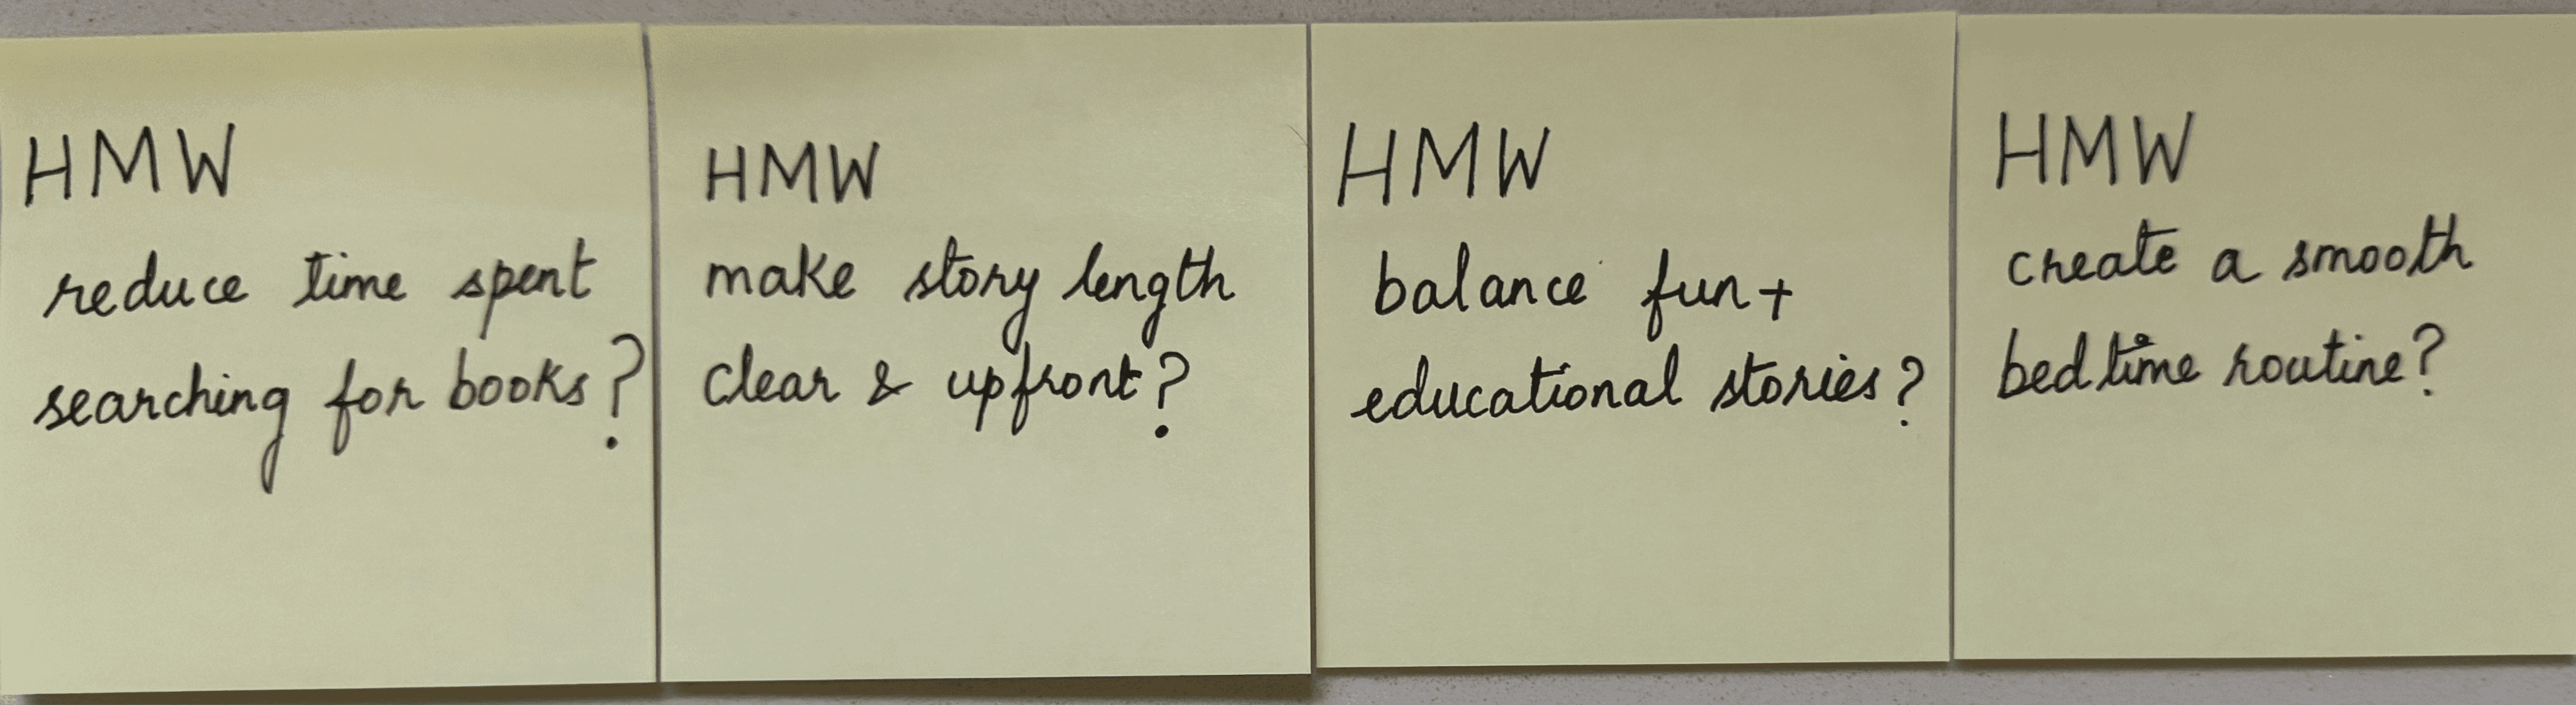 HMW
reduce time spent
searching for books?
HMW
make story length
clear & upfront?
HMW
balance fun +
educational stories?
HMW
create a smooth
bedtime routine?